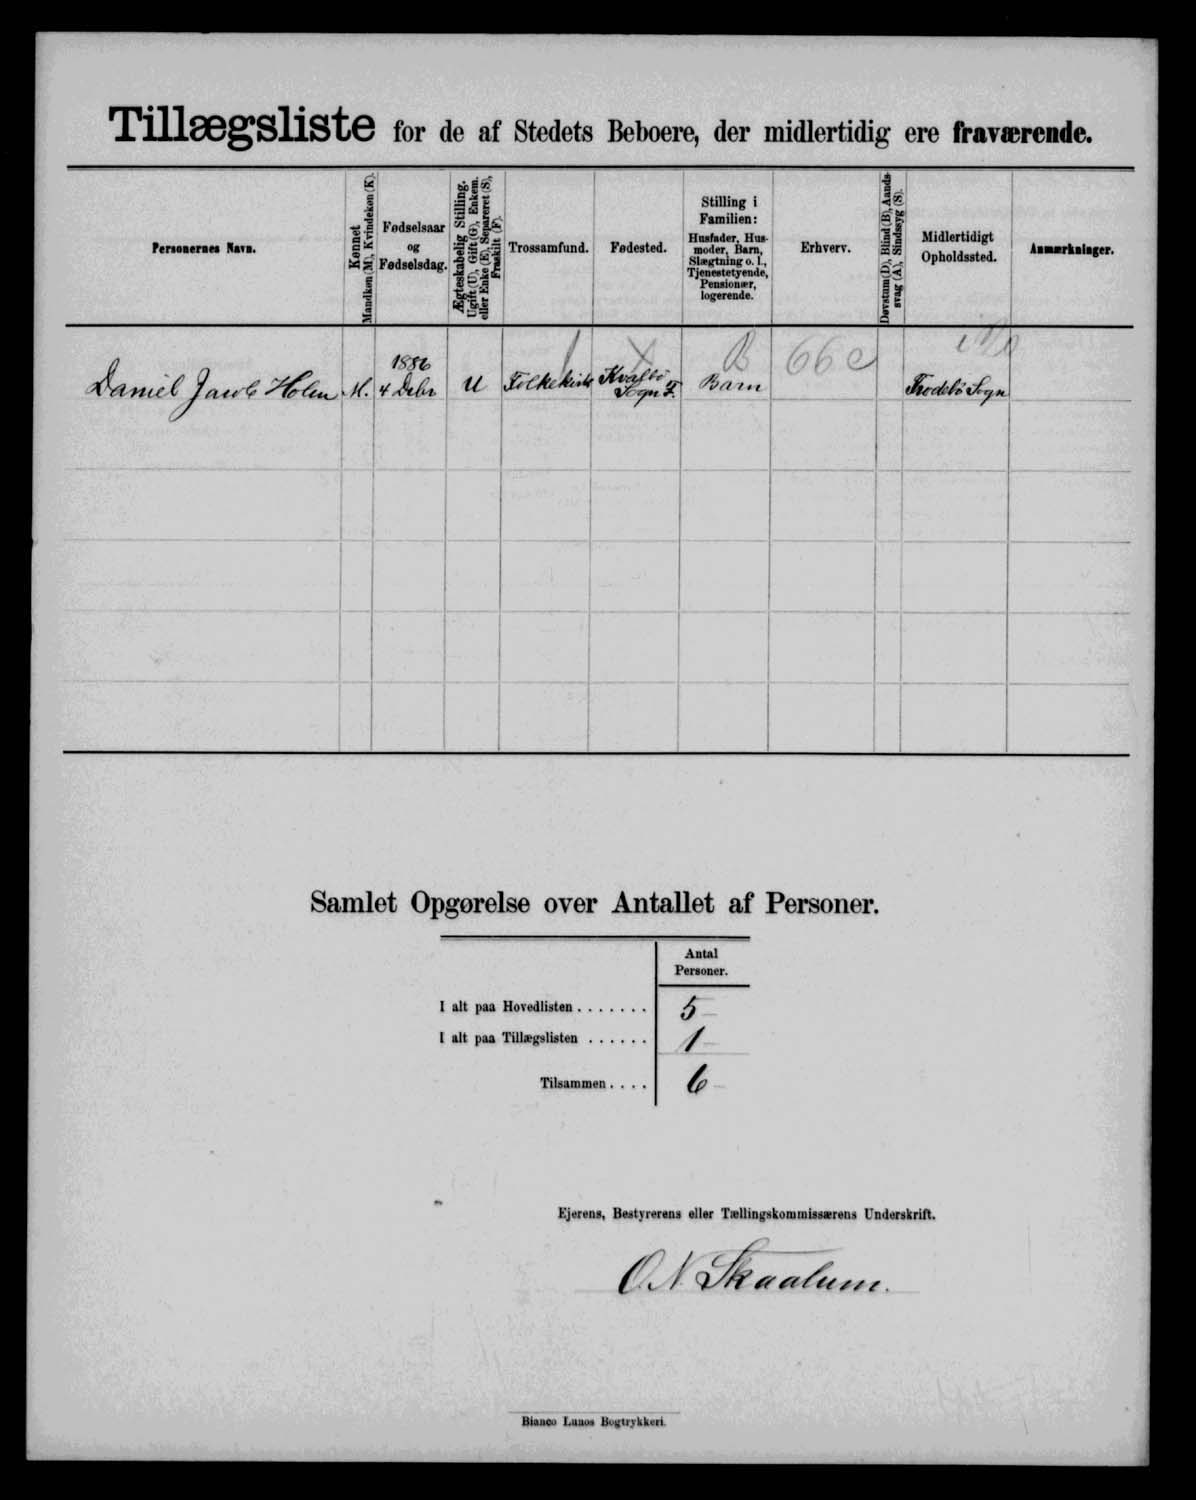 Tillægsliste for de af Stedets Beboere, der midlertidig ere fraværende.
Personernes Navn.
Kønnet
Mandkøn (M), Kvindekøn (K).
Fødselsaar
og
Fødselsdag.
Ægteskabelig Stilling.
Ugift (U), Gift (G), Enkem.
eller Enke (E), Separeret (S),
Fraskilt (F).
Trossamfund.
Fødested.
Stilling i
Familien:
Husfader, Hus-
moder, Barn,
Slægtning o. l.,
Tjenestetyende,
Pensionær,
logerende.
Erhverv.
Døvstum (D), Blind (B), Aands-
svag (A), Sindssyg (S).
Midlertidigt
Opholdssted.
Anmærkninger.
B 66 c
1886
Daniel Jacob Holm M. 4 Debr U Folkekirke Kvalbö Barn Frodebö Sogn
Sogn F.
Samlet Opgørelse over Antallet af Personer.
Antal
Personer.
I alt paa Hovedlisten . . . . . . . 5
I alt paa Tillægslisten . . . . . . 1
Tilsammen . . . . 6
Ejerens, Bestyrerens eller Tællingskommissærens Underskrift.
O. N. Skaalum.
Bianco Lunos Bogtrykkeri.